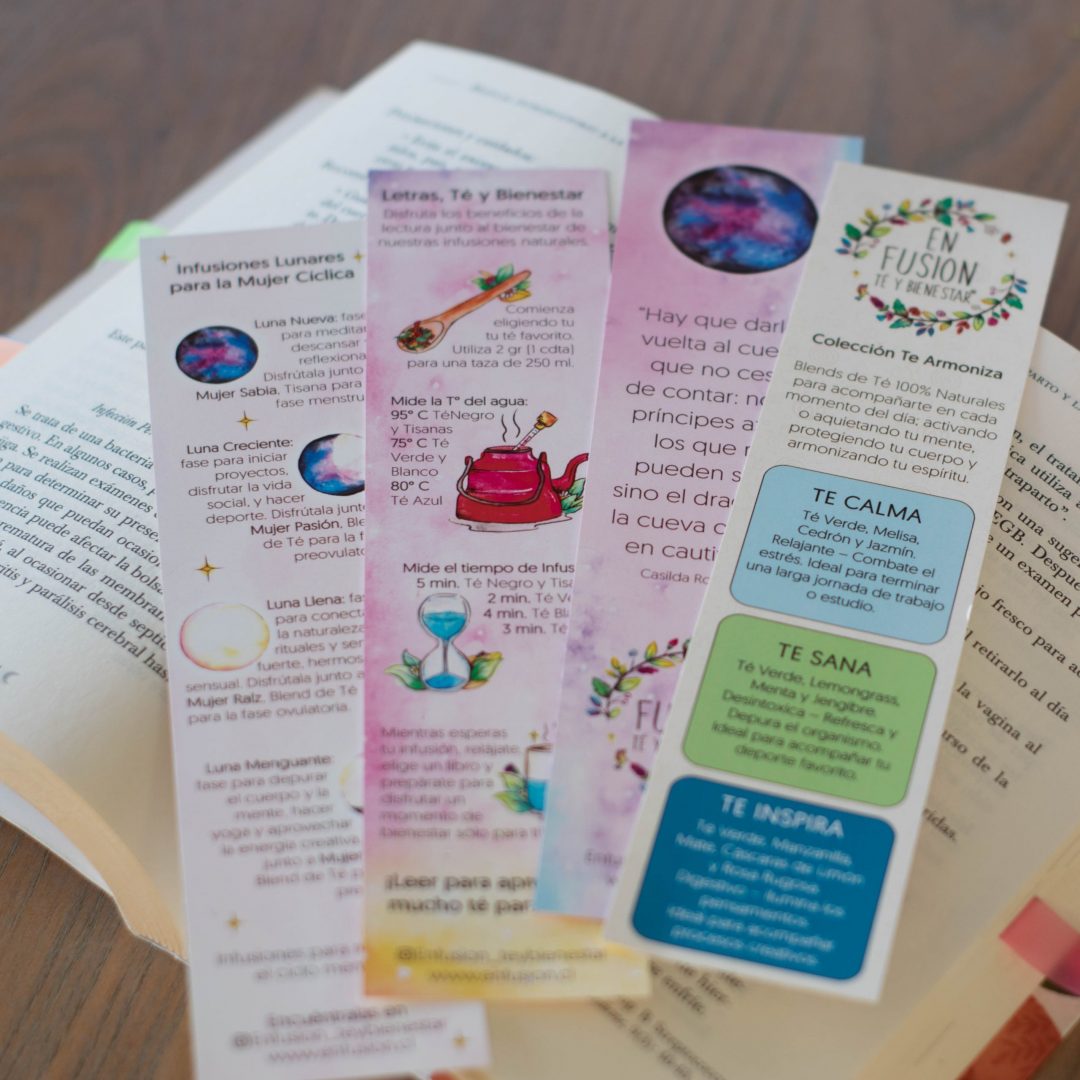 Infusiones Lunares
para la Mujer Cíclica
Luna Nueva: fase
para meditar
descansar
reflexiona
Disfrútala junto
Mujer Sabia. Tisana para
fase menstru
Luna Creciente:
fase para iniciar
proyectos,
disfrutar la vida
social, y hacer
deporte. Disfrútala junto
Mujer Pasión, Ble
de Té para la f
preovulato
Luna Llena: fas
para conect
la naturaleza
rituales y ser
fuerte, hermos
sensual. Disfrútala junto a
Mujer Raíz. Blend de Té
para la fase ovulatoria.
Luna Menguante:
fase para depurar
el cuerpo y la
mente, hacer
yoga y aprovechar
la energía creativa
junto a Mujer
Blend de Té p
pre
Infusiones para
el ciclo men
Encuéntralas en
@Enfusion_teybienestar
www.enfusion.cl
Letras, Té y Bienestar
Disfruta los beneficios de la
lectura junto al bienestar de
nuestras infusiones naturales.
Comienza
eligiendo tu
tu té favorito.
Utiliza 2 gr (1 cdta)
para una taza de 250 ml.
Mide la T° del agua:
95° C TéNegro
y Tisanas
75° C Té
Verde y
Blanco
80° C
Té Azul
Mide el tiempo de Infus
5 min. Té Negro y Tisa
2 min. Té Ve
4 min. Té Bl
3 min. Té
Mientras esperas
tu infusión, relájate,
elige un libro y
prepárate para
disfrutar un
momento de
bienestar solo para t
¡Leer para apr
mucho té par
@Enfusion_teybienestar
www.enfusion.cl
"Hay que darl
vuelta al cue
que no ces
de contar: no
príncipes a
los que
pueden s
sino el dra
la cueva c
en cauti
Casilda Ro
FU
TÉ Y
EN
FUSION
TÉ Y BIENESTAR
Colección Te Armoniza
Blends de Té 100% Naturales
para acompañarte en cada
momento del día; activando
o aquietando tu mente,
protegiendo tu cuerpo y
armonizando tu espíritu.
TE CALMA
Té Verde, Melisa,
Cedrón y Jazmín.
Relajante – Combate el
estrés. Ideal para terminar
una larga jornada de trabajo
o estudio.
TE SANA
Té Verde, Lemongrass,
Menta y Jengibre.
Desintoxica – Refresca y
Depura el organismo.
Ideal para acompañar tu
deporte favorito.
TE INSPIRA
Té Verde, Manzanilla,
Mate, Cáscaras de Limón
y Rosa Rugosa.
Digestivo – Ilumina tus
pensamientos.
Ideal para acompañar
procesos creativos.
Este pa
Se trata de una bacteria
gestivo. En algunos casos, p
iga. Se realizan exámenes
para determinar su prese
daños que puedan ocasio
encia puede afectar la bolsa
rematura de las membran
á al ocasionar desde septic
itis y parálisis cerebral has
PARTO Y L
n, el trata
ca utiliza e
traparto".
on una suge
EGB. Despué
e un examen p
jo fresco para a
retirarlo al día
la vagina al
urso de la